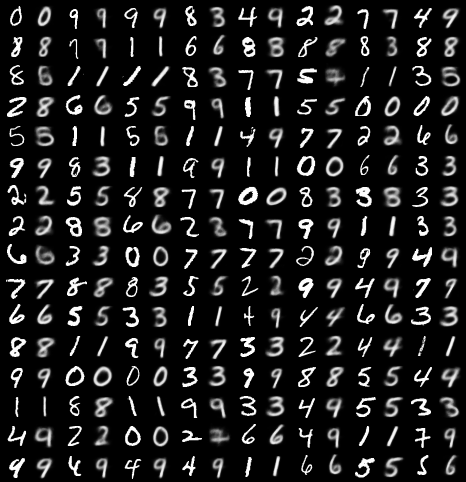 0 0 9 9 9 9 8 3 4 9 2 2 7 7 4 9
8 8 7 9 1 1 6 6 8 8 8 8 8 3 8 8
8 6 1 1 1 1 8 3 7 7 5 1 1 3 5
2 8 6 6 5 5 9 9 1 1 5 5 0 0 0 0
5 5 1 1 5 6 1 1 4 9 7 7 2 2 6 6
9 9 8 3 1 1 9 9 1 1 0 0 6 6 3 3
2 2 5 5 8 8 7 7 0 0 8 3 3 8 3 3
2 2 8 8 6 6 2 3 7 7 9 9 1 1 3 3
6 6 3 3 0 0 7 7 7 7 2 2 9 9 4 9
7 7 8 8 8 3 5 5 2 2 9 9 4 9 7 9
6 6 5 5 3 3 1 1 4 9 4 4 6 6 3 3
8 8 1 1 9 9 7 7 3 3 2 2 4 4 1 1
9 9 0 0 0 0 3 3 9 9 8 8 5 5 4 4
1 1 8 8 1 1 9 9 3 3 4 9 5 5 3 3
4 9 2 2 0 0 2 6 6 4 9 1 1 7 9
9 9 4 9 4 9 4 9 1 1 6 6 5 5 5 6